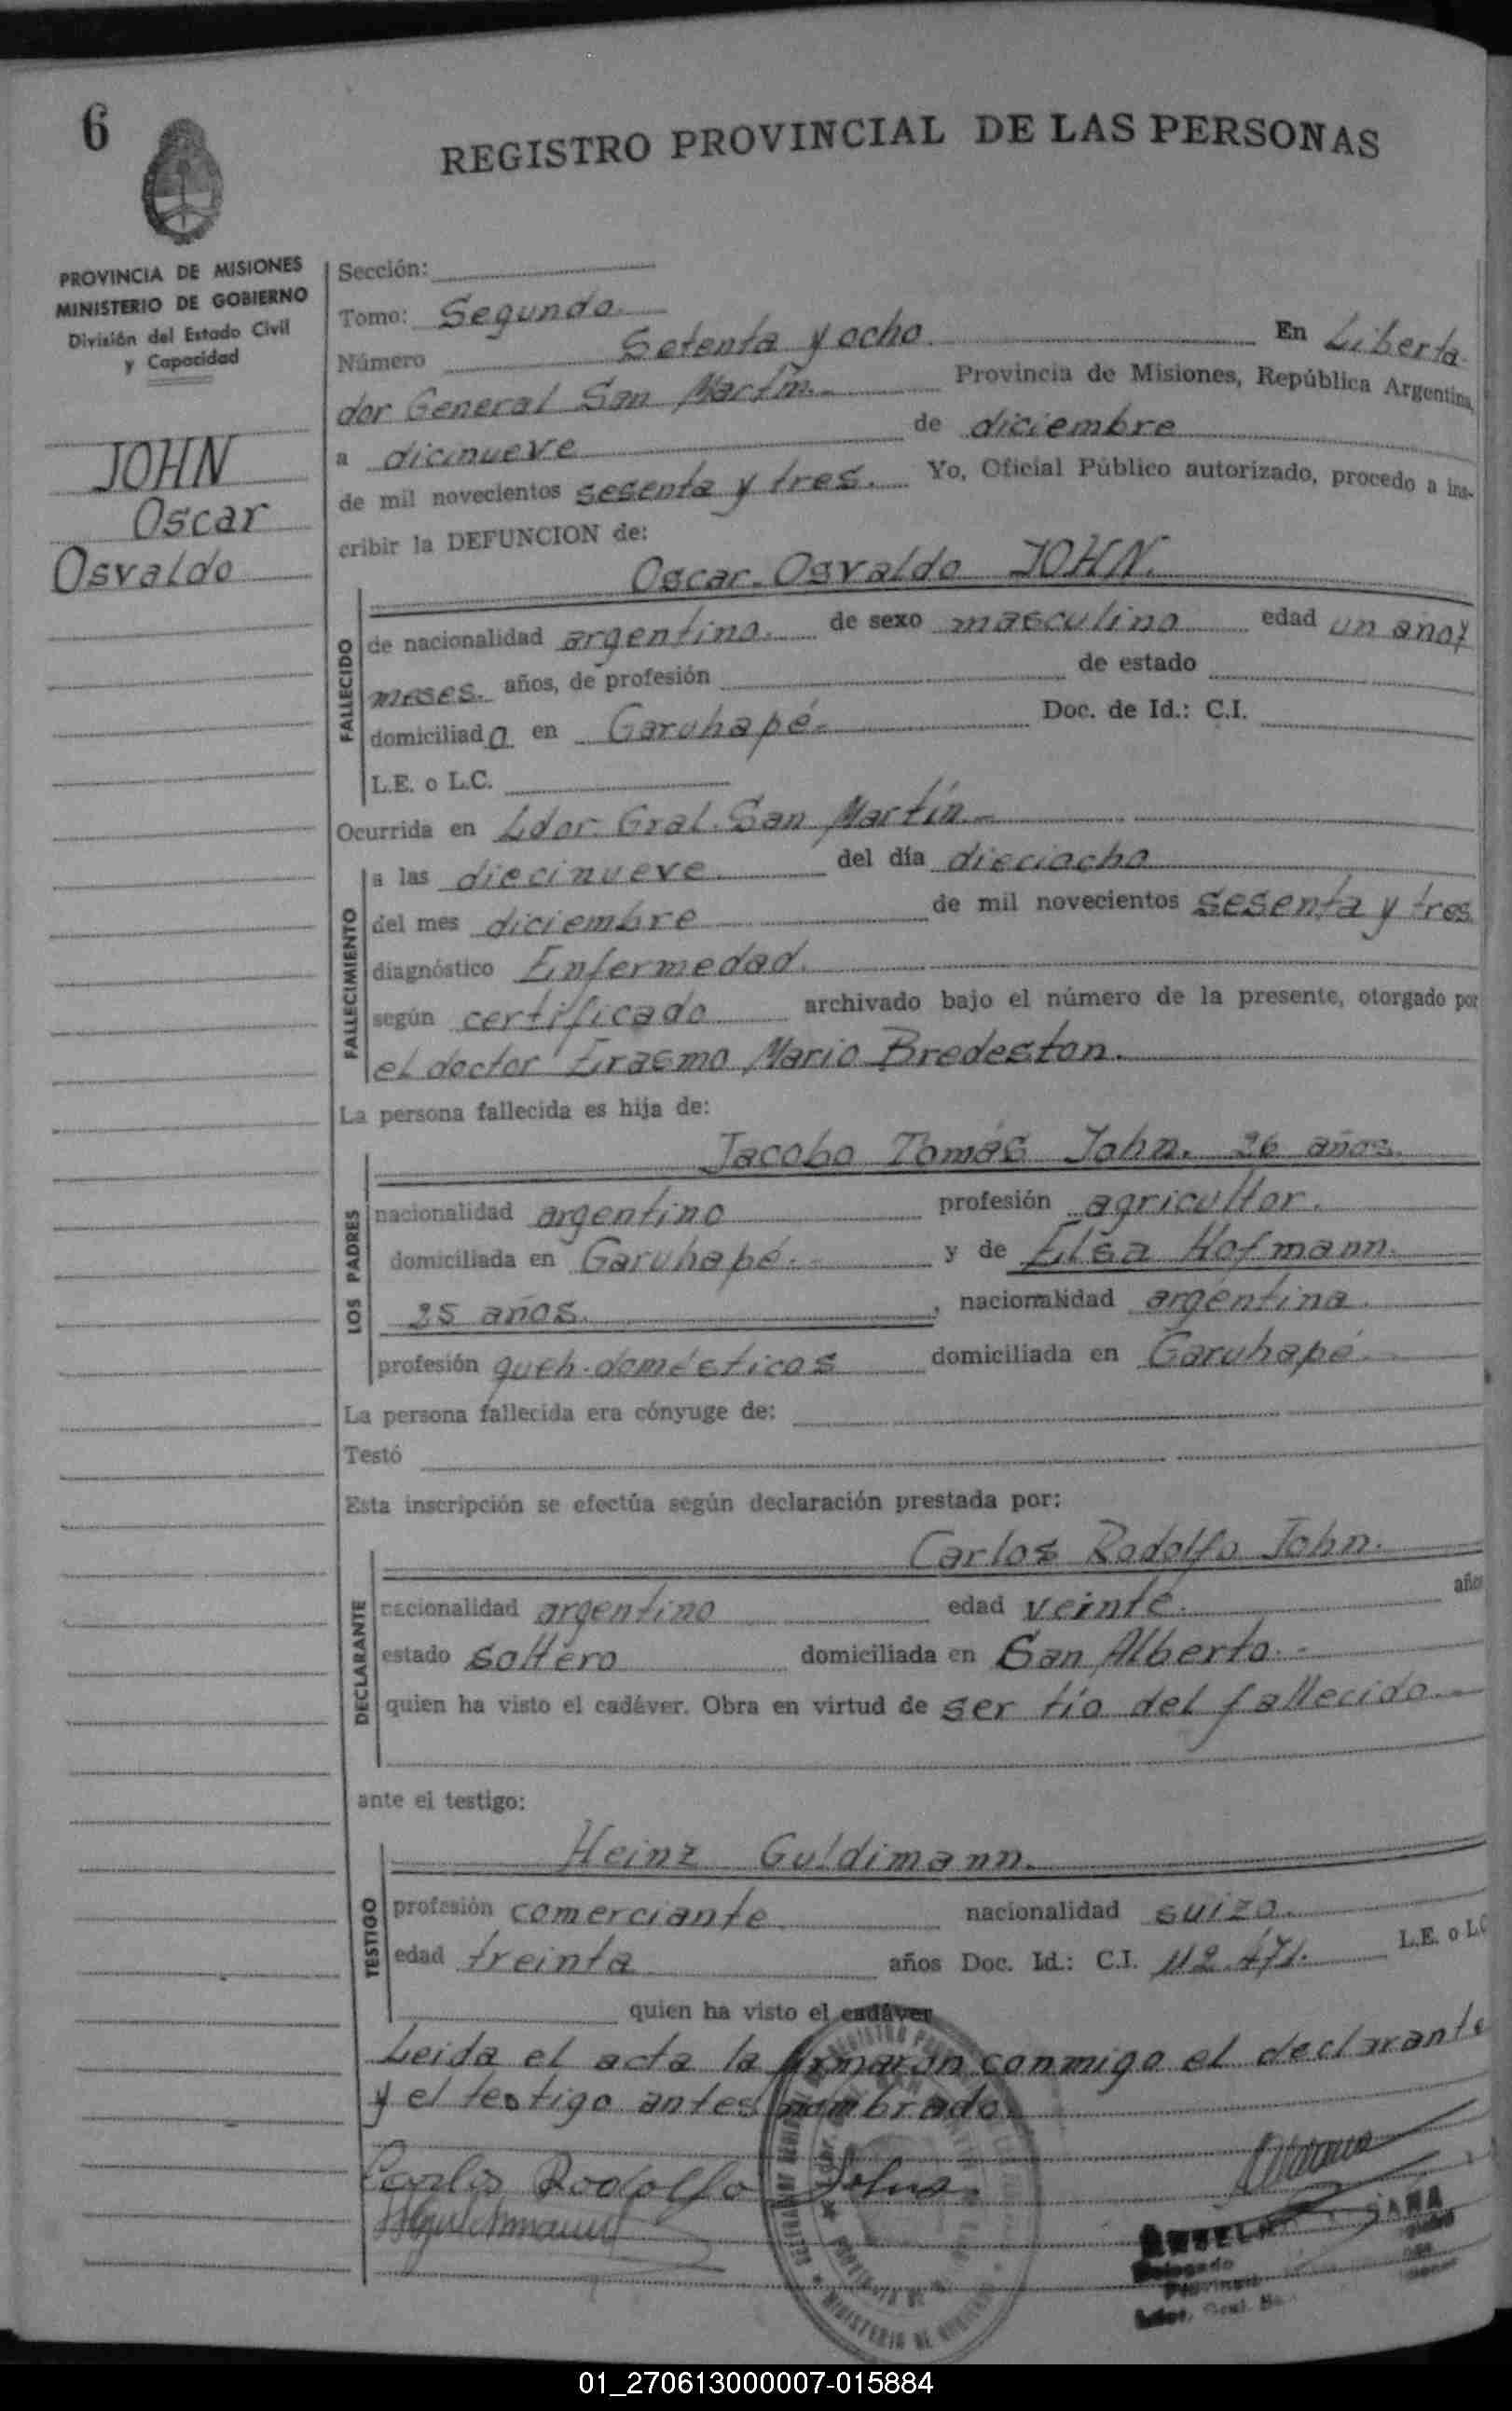 6
REGISTRO PROVINCIAL DE LAS PERSONAS
PROVINCIA DE MISIONES
MINISTERIO DE GOBIERNO
División del Estado Civil
y Capacidad
JOHN
Oscar
Osvaldo
Sección:
Tomo: Segundo.
Número Setenta y ocho. En Liberta-
dor General San Martín. Provincia de Misiones, República Argentina,
a dicinueve de diciembre
de mil novecientos sesenta y tres. Yo, Oficial Público autorizado, procedo a ins-
cribir la DEFUNCION de:
Oscar Osvaldo JOHN.
FALLECIDO
de nacionalidad argentina. de sexo masculino edad un año y
meses. años, de profesión de estado
domiciliado en Garuhapé. Doc. de Id.: C.I.
L.E. o L.C.
Ocurrida en Ldor. Gral. San Martín
FALLECIMIENTO
a las diecinueve del día dieciocho
del mes diciembre de mil novecientos sesenta y tres
diagnóstico Enfermedad.
según certificado archivado bajo el número de la presente, otorgado por
el doctor Erasmo Mario Bredeston.
La persona fallecida es hija de:
LOS PADRES
Jacobo Tomás John. 26 años.
nacionalidad argentino profesión agricultor.
domiciliada en Garuhapé. y de Elsa Hofmann.
25 años. , nacionalidad argentina
profesión queh. domésticos domiciliada en Garuhapé
La persona fallecida era cónyuge de:
Testó
Esta inscripción se efectúa según declaración prestada por:
DECLARANTE
Carlos Rodolfo John.
nacionalidad argentino edad veinte. años
estado soltero domiciliada en San Alberto.
quien ha visto el cadáver. Obra en virtud de ser tío del fallecido
ante el testigo:
TESTIGO
Heinz Guldimann.
profesión comerciante nacionalidad suizo.
edad treinta años Doc. Id.: C.I. 112.471. L.E. o LC
quien ha visto el cadáver
Leida el acta la firmaron conmigo el declarante
y el testigo antes nombrado.
Carlos Rodolfo John.
01_270613000007-015884